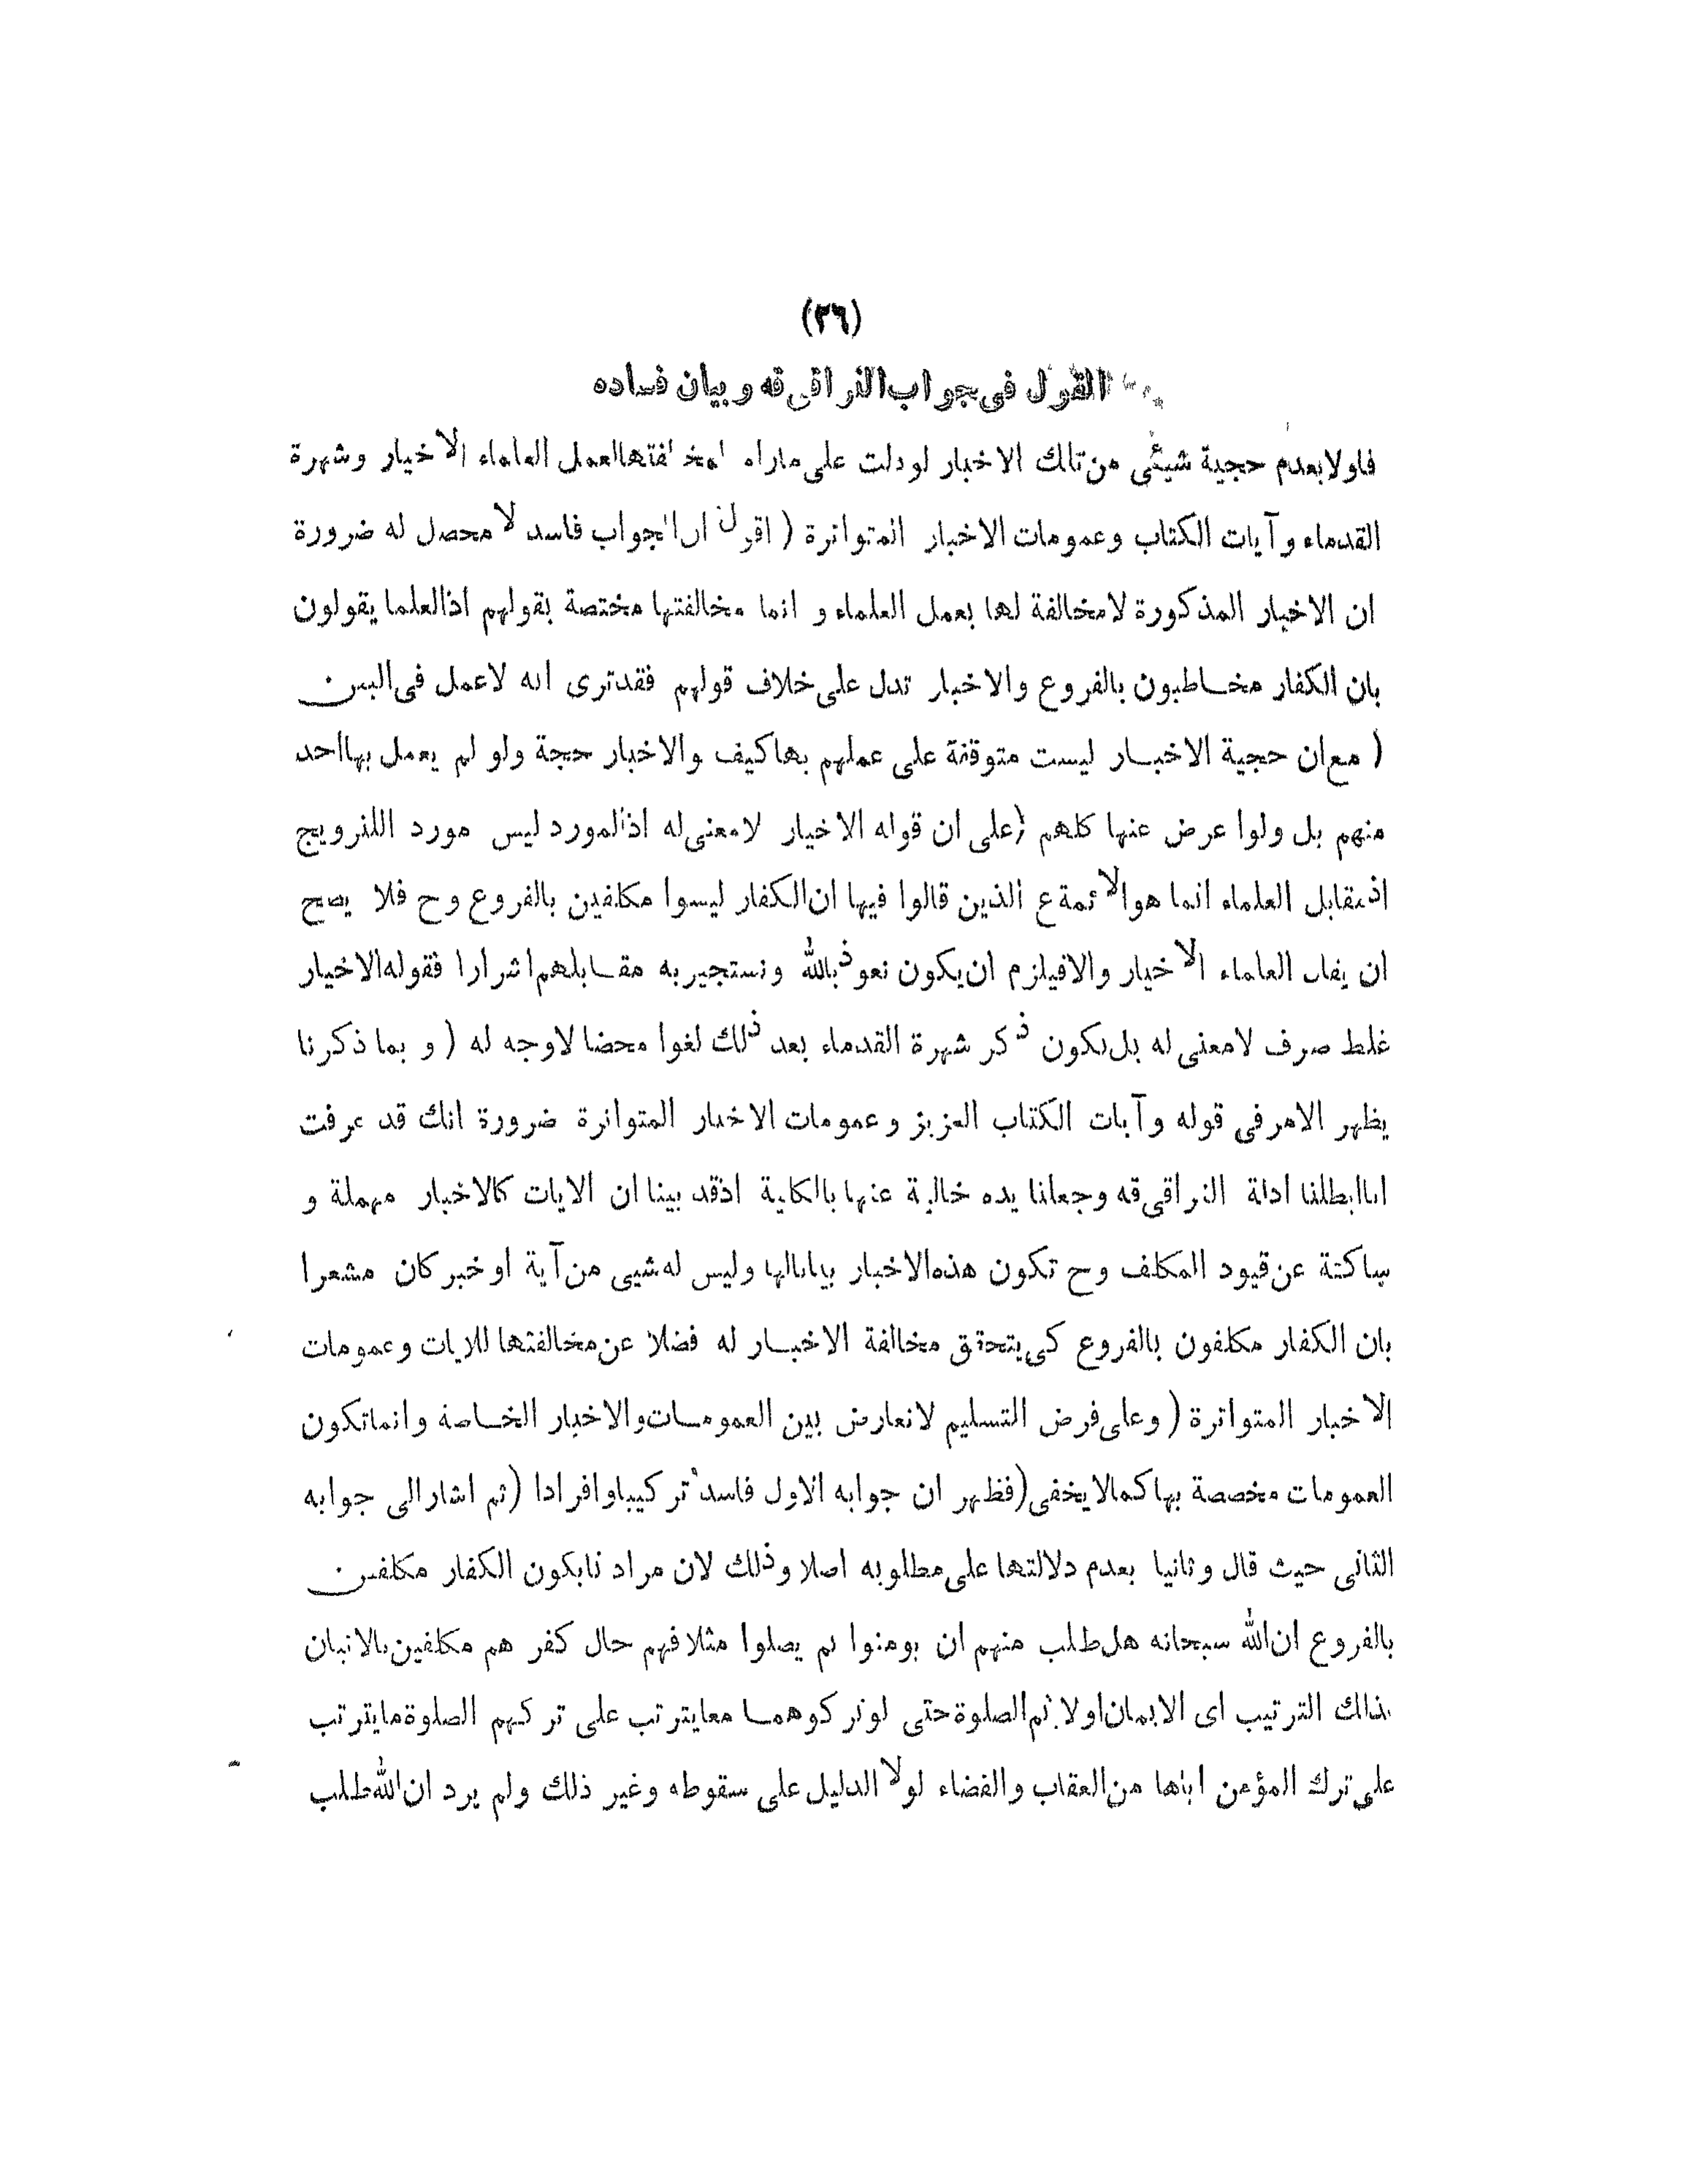 (٣٦)
القول فى جواب النراقى قه و بيان فساده
فاولا بعدم حجية شيئى من تلك الاخبار لو دلت على ماراه لمخالفتها لعمل العلماء الاخيار وشهرة
القدماء و آيات الكتاب وعمومات الاخبار المتواترة ( اقول ان الجواب فاسد لا محصل له ضرورة
ان الاخبار المذكورة لا مخالفة لها بعمل العلماء و انما مخالفتها مختصة بقولهم اذالعلما يقولون
بان الكفار مخاطبون بالفروع والاخبار تدل على خلاف قولهم فقدترى انه لاعمل فى البين
( مع ان حجية الاخبار ليست متوقفة على عملهم بها كيف والاخبار حجة ولو لم يعمل بها احد
منهم بل ولوا عرض عنها كلهم (على ان قوله الاخيار لامعنى له اذالمورد ليس مورد اللترويج
اذمقابل العلماء انما هوالائمة ع الذين قالوا فيها ان الكفار ليسوا مكلفين بالفروع وح فلا يصح
ان يقال العلماء الاخيار والافيلزم ان يكون نعوذبالله ونستجير به مقابلهم اشرارا فقوله الاخيار
غلط صرف لامعنى له بل يكون ذكر شهرة القدماء بعد ذلك لغوا محضا لاوجه له ( و بما ذكرنا
يظهر الامر فى قوله وآيات الكتاب العزيز وعمومات الاخبار المتواترة ضرورة انك قد عرفت
انا ابطلنا ادلة النراقى قه وجعلنا يده خالية عنها بالكلية اذقد بينا ان الايات كالاخبار مهملة و
ساكتة عن قيود المكلف وح تكون هذه الاخبار بيانالها وليس له شيى من آية او خبر كان مشعرا
بان الكفار مكلفون بالفروع كى يتحقق مخالفة الاخبار له فضلا عن مخالفتها للايات وعمومات
الاخبار المتواترة ( وعلى فرض التسليم لاتعارض بين العمومات والاخبار الخاصة وانماتكون
العمومات مخصصة بها كمالا يخفى (فظهر ان جوابه الاول فاسد تركيبا وافرادا (ثم اشار الى جوابه
الثانى حيث قال وثانيا بعدم دلالتها على مطلوبه اصلا وذلك لان مراد نابكون الكفار مكلفين
بالفروع ان الله سبحانه هل طلب منهم ان يومنوا ثم يصلوا مثلا فهم حال كفر هم مكلفين بالاتيان
بذلك الترتيب اى الايمان اولا ثم الصلوة حتى لو تركوهما معا يترتب على تركهم الصلوة مايترتب
على ترك المؤمن اياها من العقاب والقضاء لولا الدليل على سقوطه وغير ذلك ولم يرد ان الله طلب